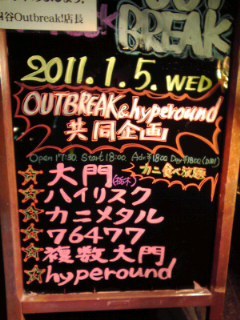 四谷Outbreak!店長
OUT
BREAK
2011.1.5. WED
OUTBREAK&hyperound
共同企画
Open 17:30 Start 18:00 Adv ¥1800 Day ¥1800
カニ食べ放題
☆大門
☆ハイリスク
☆カニメタル
☆76477
☆複数大門
☆hyperound